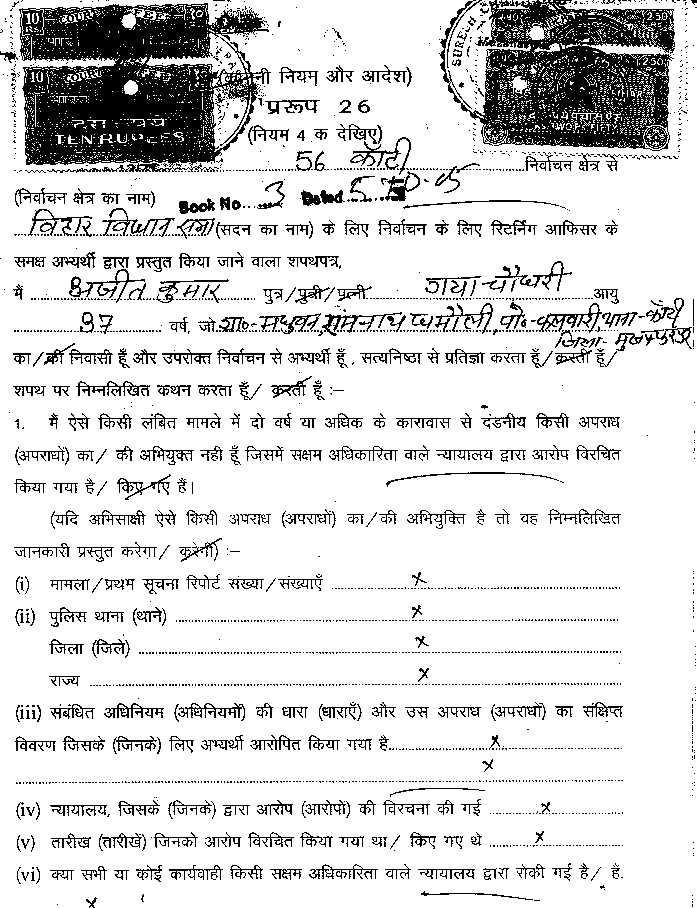 10
10
TEN RUPEES
2.50
2.50
(कानूनी नियम और आदेश)
प्ररूप 26
(नियम 4 क देखिए)
56 कांटी निर्वाचन क्षेत्र से
(निर्वाचन क्षेत्र का नाम)
Book No. 3 Dated 5
बिहार विधान सभा (सदन का नाम) के लिए निर्वाचन के लिए रिटर्निंग आफिसर के
समक्ष अभ्यर्थी द्वारा प्रस्तुत किया जाने वाला शपथपत्र,
मैं अजीत कुमार पुत्र/पुत्री/पत्नी गया चौधरी आयु
37 वर्ष, जो ग्रा०- मधुबन, पो०- कलवारी, थाना- कांटी
जिला-
का/की निवासी हूँ और उपरोक्त निर्वाचन से अभ्यर्थी हूँ, सत्यनिष्ठा से प्रतिज्ञा करता हूँ/करती हूँ/
शपथ पर निम्नलिखित कथन करता हूँ/ करती हूँ :–
1. मैं ऐसे किसी लंबित मामले में दो वर्ष या अधिक के कारावास से दंडनीय किसी अपराध
(अपराधों) का/ की अभियुक्त नही हूँ जिसमें सक्षम अधिकारिता वाले न्यायालय द्वारा आरोप विरचित
किया गया है/ किए गए हैं।
(यदि अभिसाक्षी ऐसे किसी अपराध (अपराधों) का/की अभियुक्ति है तो वह निम्नलिखित
जानकारी प्रस्तुत करेगा/ करेगी) :–
(i) मामला/प्रथम सूचना रिपोर्ट संख्या/संख्याएँ x
(ii) पुलिस थाना (थाने) x
जिला (जिले) x
राज्य x
(iii) संबंधित अधिनियम (अधिनियमों) की धारा (धाराएँ) और उस अपराध (अपराधों) का संक्षिप्त
विवरण जिसके (जिनके) लिए अभ्यर्थी आरोपित किया गया है x
x
(iv) न्यायालय, जिसके (जिनके) द्वारा आरोप (आरोपों) की विरचना की गई x
(v) तारीख (तारीखें) जिनको आरोप विरचित किया गया था/ किए गए थे x
(vi) क्या सभी या कोई कार्यवाही किसी सक्षम अधिकारिता वाले न्यायालय द्वारा रोकी गई है/ हैं.
x